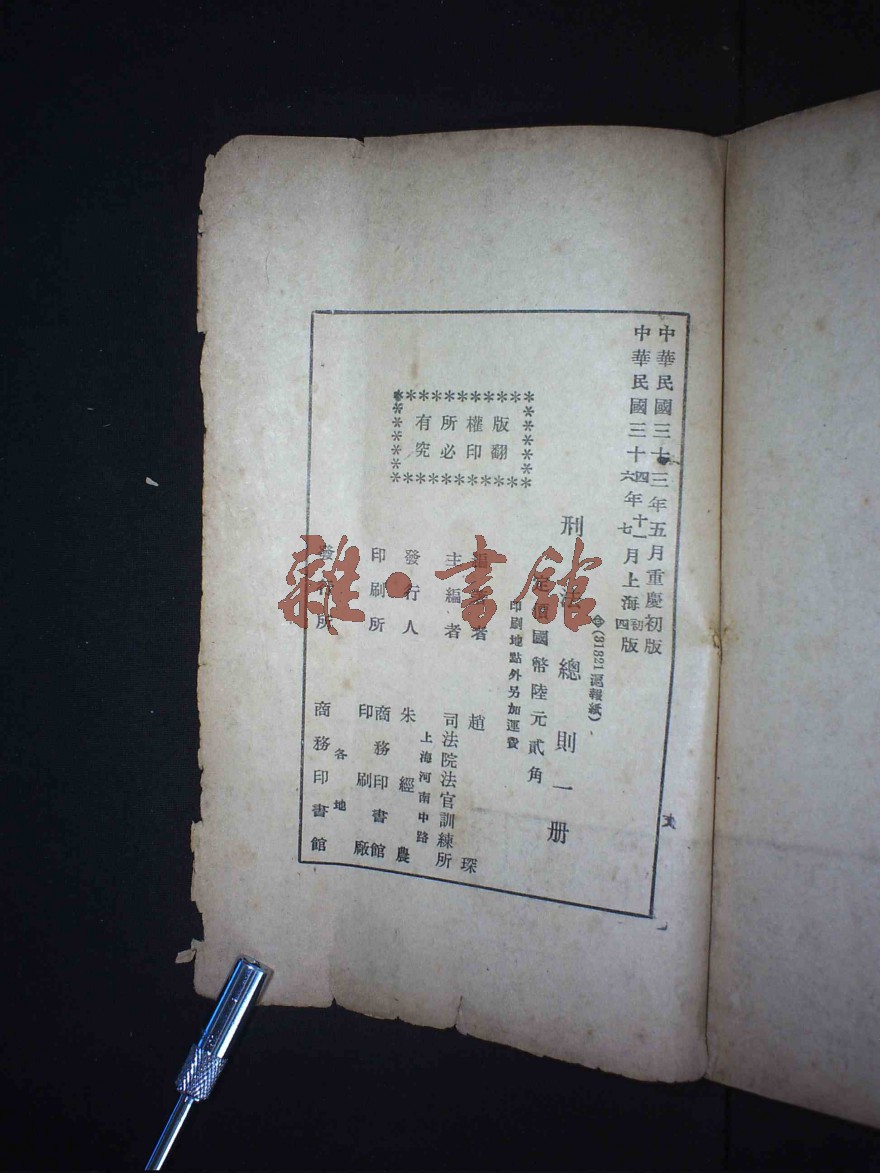 中華民國三十三年五月重慶初版
中華民國三十四年十一月上海初版
六 七 四
⊕(31321滬報紙)
刑法總則一册
定價國幣陸元貳角
印刷地點外另加運費
版權所有
翻印必究
編著者 趙琛
主編者 司法院法官訓練所
發行人 朱經農
上海河南中路
印刷所 商務印書館印刷廠
各地
發行所 商務印書館
雜·書館